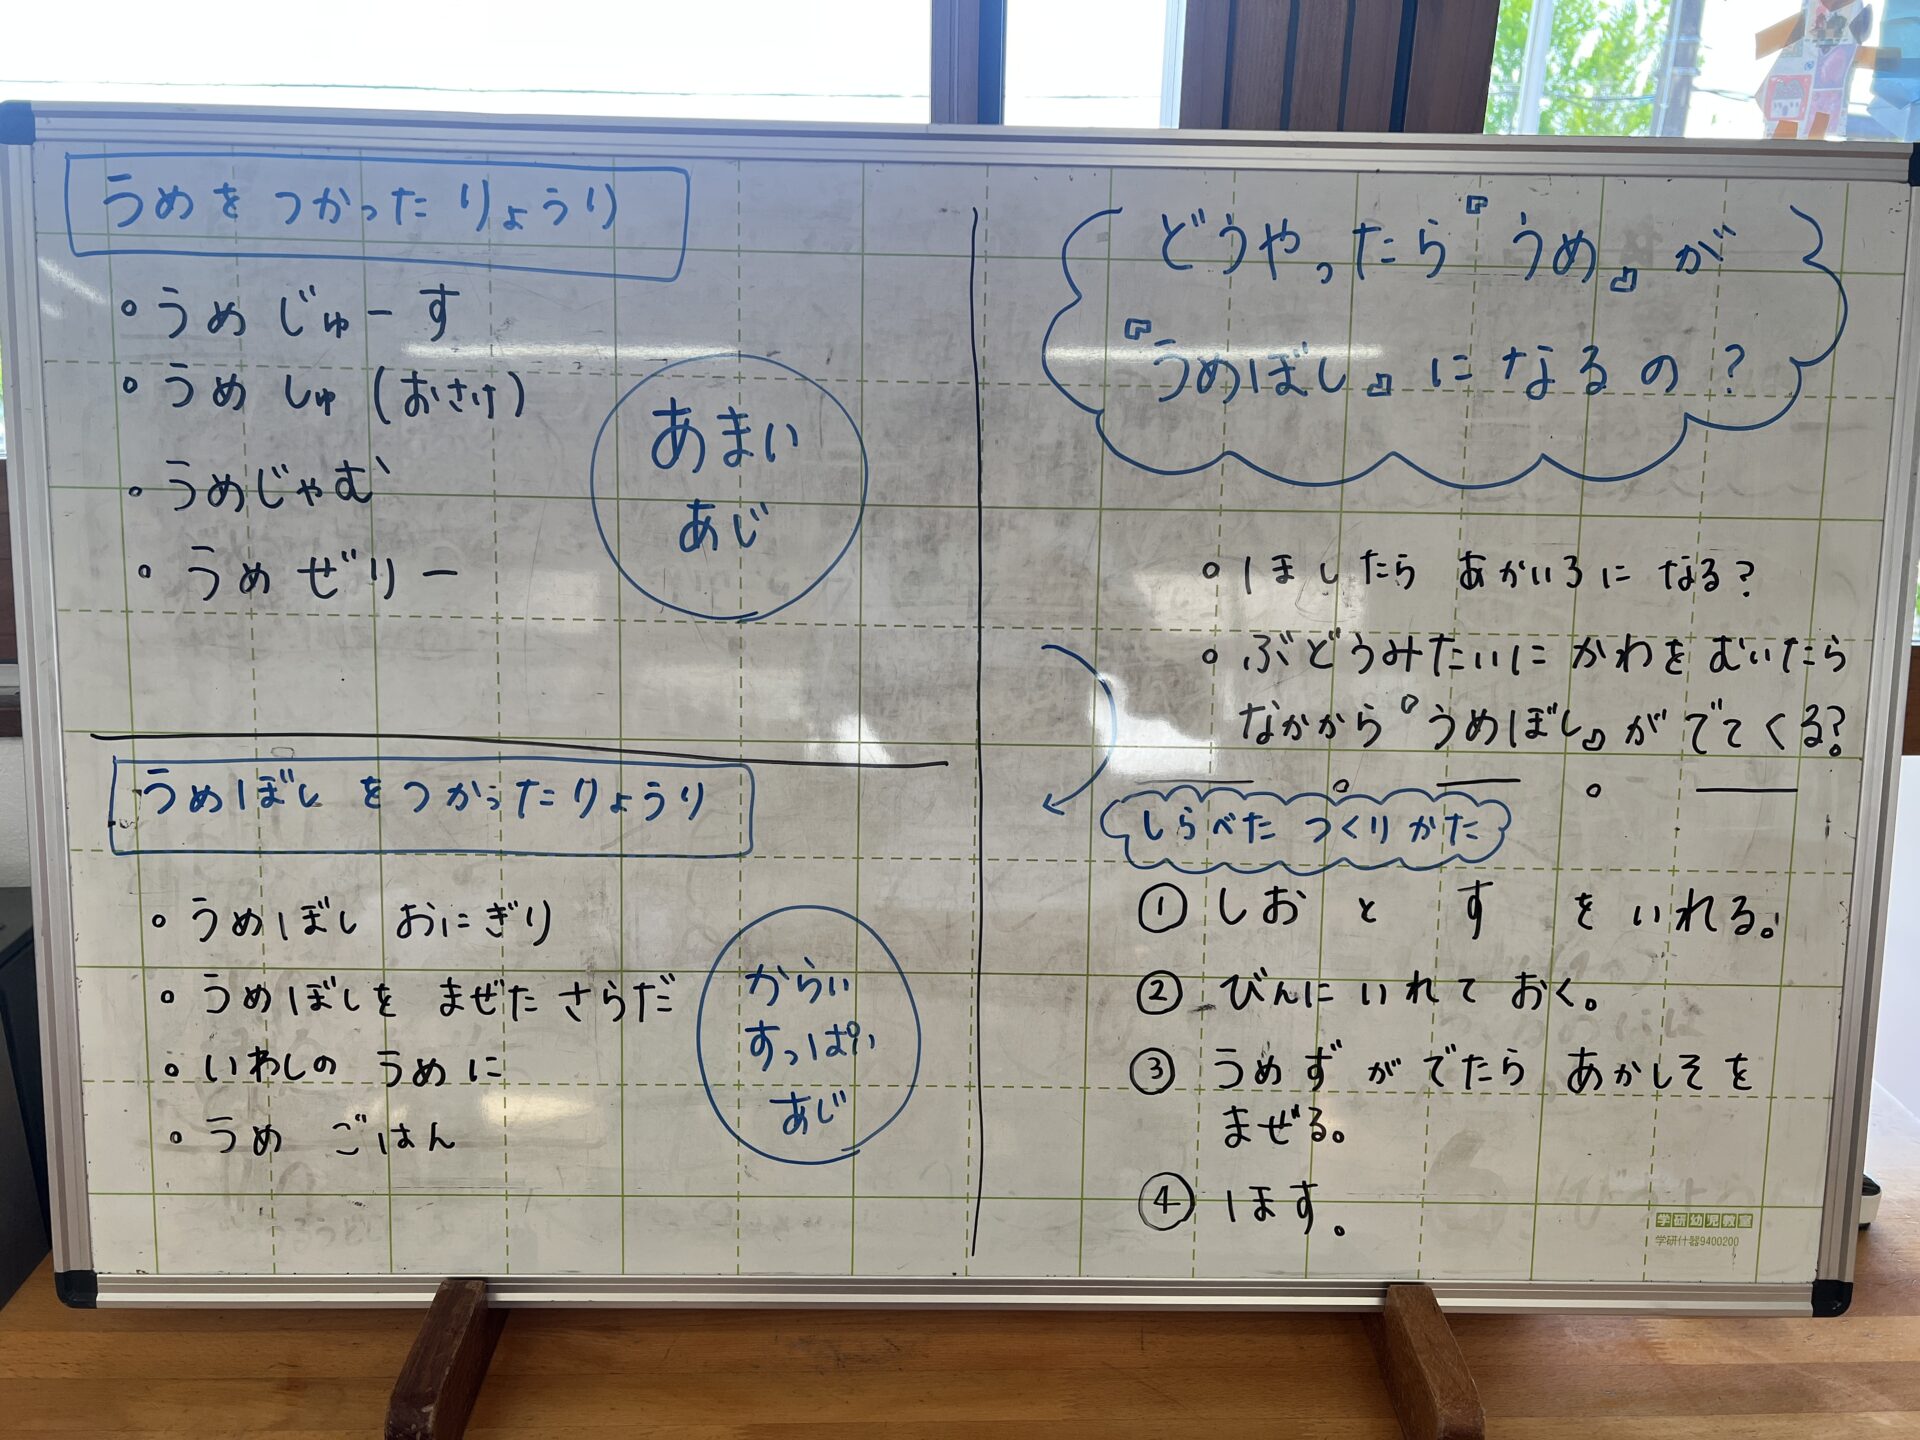 うめを つかった りょうり
・うめ じゅーす
・うめ しゅ (おさけ)
・うめじゃむ
・うめ ぜりー
あまい
あじ
うめぼし を つかった りょうり
・うめぼし おにぎり
・うめぼしを まぜた さらだ
・いわしの うめに
・うめ ごはん
からい
すっぱい
あじ
どうやったら『うめ』が
『うめぼし』に なるの?
・ほしたら あかいろに なる?
・ぶどうみたいに かわを むいたら
なかから『うめぼし』が でてくる?
しらべた つくりかた
① しお と す を いれる。
② びんに いれて おく。
③ うめず が でたら あかしそを
まぜる。
④ ほす。
学研幼児教室
学研什器9400200